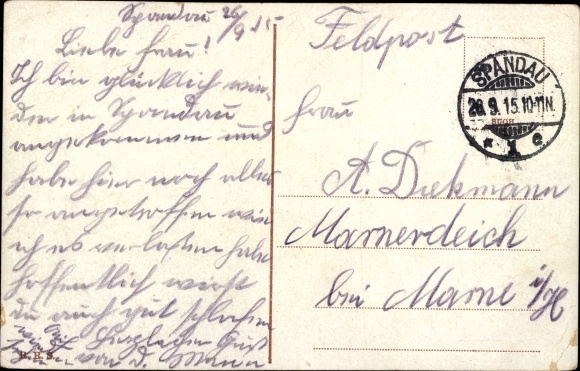 Spandau 26/9 15
Liebe Frau!
Ich bin glücklich wie-
der in Spandau
angekommen und
habe hier noch alles
so angetroffen wie
ich es verlassen habe
hoffentlich wirst
du auch gut schlafen
Herzlichen Gruß
von D. Mann
R. & S.
Feldpost
SPANDAU
26.9.15.10-11N.
* 1 e
Frau
A. Diekmann
Marnerdeich
bei Marne i/H